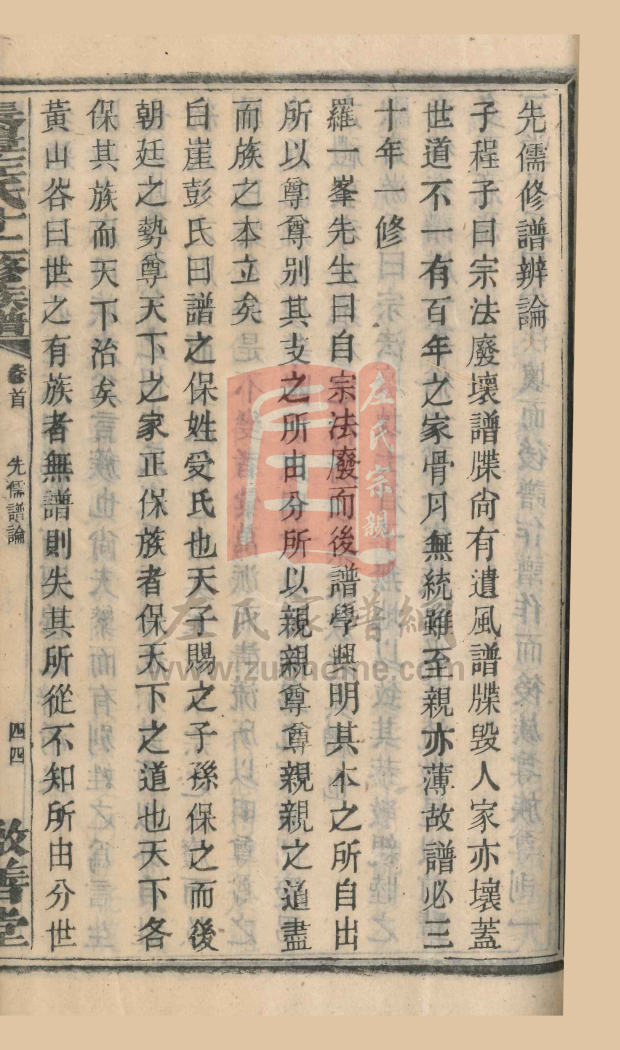 先儒修譜辨論
子程子曰宗法廢壞譜牒尙有遺風譜牒毀人家亦壞蓋
世道不一有百年之家骨月無統雖至親亦薄故譜必三
十年一修
羅一峯先生曰自宗法廢而後譜學興明其本之所自出
所以尊尊別其支之所由分所以親親尊尊親親之道盡
而族之本立矣
白崖彭氏曰譜之保姓受氏也天子賜之子孫保之而後
朝廷之勢尊天下之家正保族者保天下之道也天下各
保其族而天下治矣
黃山谷曰世之有族者無譜則失其所從不知所由分世
左氏十二修族譜
卷首
先儒譜論
四四
敦善堂
左氏宗親
左氏家譜網
www.zuohome.com